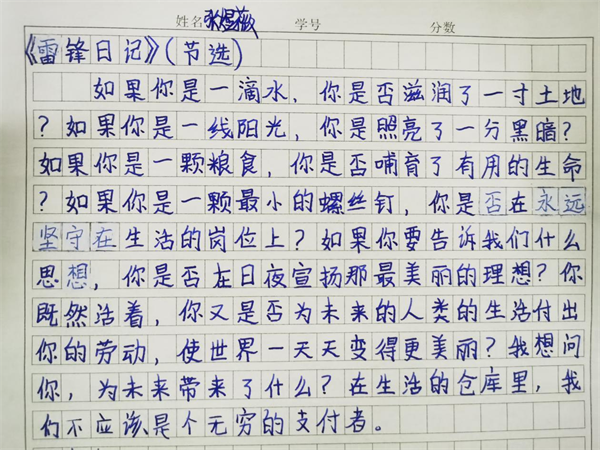 姓名张煜薇 学号 分数
《雷锋日记》(节选)
如果你是一滴水,你是否滋润了一寸土地
?如果你是一线阳光,你是照亮了一分黑暗?
如果你是一颗粮食,你是否哺育了有用的生命
?如果你是一颗最小的螺丝钉,你是否在永远
坚守在生活的岗位上?如果你要告诉我们什么
思想,你是否在日夜宣扬那最美丽的理想?你
既然活着,你又是否为未来的人类的生活付出
你的劳动,使世界一天天变得更美丽?我想问
你,为未来带来了什么?在生活的仓库里,我
们不应该是个无穷的支付者。